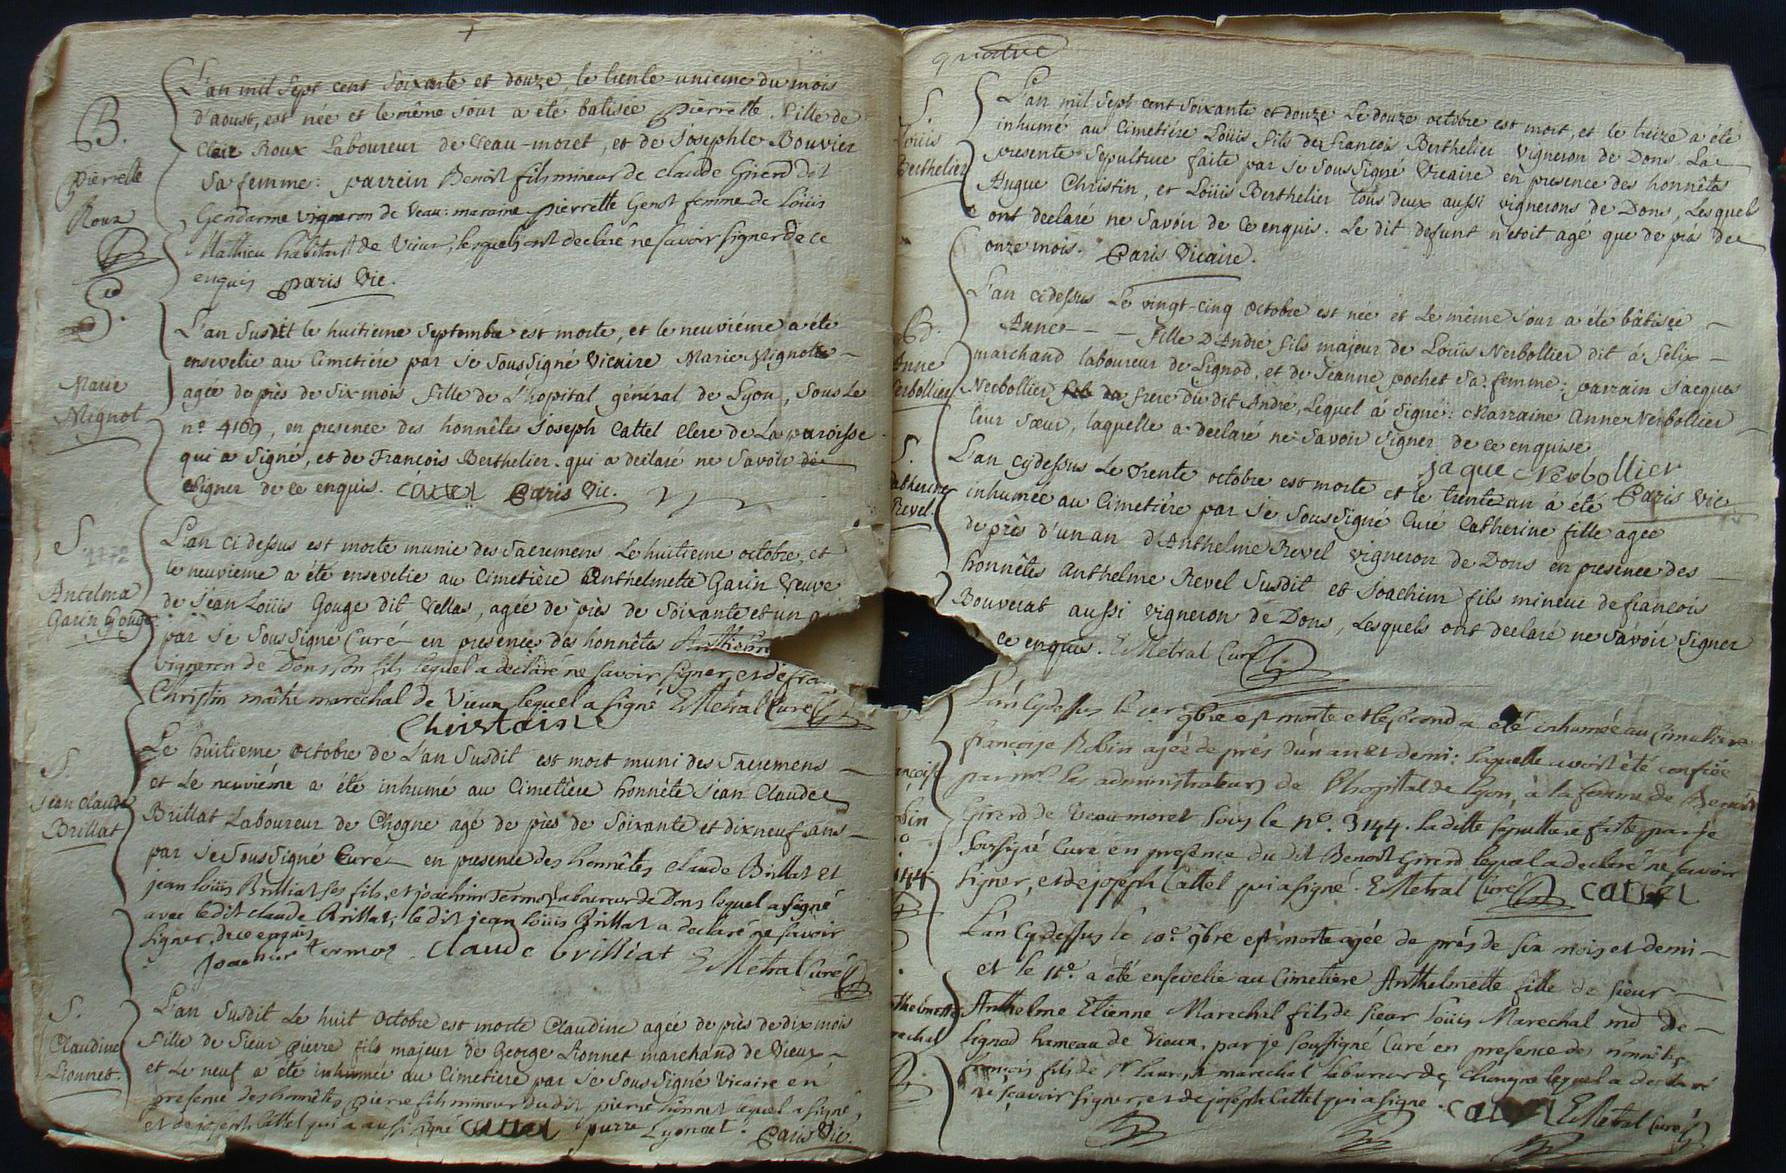 B.
Pierrette
Roux
L'an mil Sept cent Soixante et douze, le trente-unieme du mois
d'aoust, est née et le même jour a été batisée Pierrette fille de
Clair Roux Laboureur de Veau-moret, et de Josephte Bouvier
Sa femme: parrein Benoit fils mineur de Claude Girerd dit
Gendarme vigneron de Veau: maraine pierrette Genot femme de Loüis
Mathieu habitant de Vieux, lesquels ont declaré ne savoir signer de ce
enquis Paris Vic.
S.
Marie
Mignot
L'an Susdit le huitieme Septembre est morte, et le neuviéme a été
ensevelie au Cimetiere par je Soussigné Vicaire Marie Mignot
agée de près de Six mois fille de L'hopital général de Lyon, Sous Le
n.° 4169, en presence des honnêtes Joseph Cattel Clerc de La paroisse
qui a Signé, et de François Berthelier qui a declaré ne Savoir
Signer de ce enquis. Catel Paris Vic.
S.
1772
Antelma
Garin Gouge
L'an ci dessus est morte munie des Sacremens Le huitieme octobre, et
le neuvieme a été ensevelie au Cimetière Anthelmette Garin Veuve
de Jean Loüis Gouge dit Vellas, agée de près de Soixante et un
par je Soussigné Curé en presence des honnêtes
vigneron de Dons son fils lequel a declaré ne savoir signer, et de
Christin maître marechal de Vieux lequel a signé EMetral Curé
Christain
S.
Jean Claude
Brillat
Le huitieme octobre de L'an Susdit est mort muni des Sacremens
et Le neuviéme a été inhumé au Cimetière honnête Jean Claude
Brillat Laboureur de Chogne agé de près de Soixante et dix neuf ans
par je Soussigné Curé en presence des honnêtes Claude Brillat et
jean Loüis Brilliat ses fils, et joachim Termoz laboureur de Dons lequel a signé
avec ledit Claude Brillat; le dit jean Loüis Brillat a declaré ne savoir
signer, de ce enquis
Joachim termoz. Claude brilliat EMetral Curé
S.
Claudine
Lionnet.
L'an Susdit Le huit Octobre est morte Claudine agée de près de dix mois
fille de Sieur pierre fils majeur de George Lionnet marchand de Vieux
et Le neuf a été inhumée au Cimetiere par je Soussigné Vicaire en
presence des honnêtes pierre fils mineur du dit pierre Lionnet lequel a signé,
et de joseph Cattel qui a aussi signé Catel pierre Lyonnet. Paris Vic.
quatre
S.
Loüis
Berthelier
L'an mil Sept cent Soixante et douze Le douze octobre est mort, et le treize a été
inhumé au Cimetiére Loüis fils de francois Berthelier vigneron de Dons. La
presente Sepulture faite par je Soussigné Vicaire en presence des honnêtes
Augue Christin, et Loüis Berthelier tous deux aussi vignerons de Dons, Lesquels
ont declaré ne Savoir de ce enquis. Le dit defunt n'etoit agé que de près de
onze mois. Paris Vicaire.
B.
Anne
Nerbollier
L'an cidessus Le vingt-cinq octobre est née et Le même Jour a été bâtisée
Anne - - - fille D'André fils majeur de Loüis Nerbollier dit á felix
marchand laboureur de Lignod, et de Jeanne pochet Sa femme: parrain Jacques
Nerbollier frere du dit André, Lequel á Signé: Marraine Anne Nerbollier
leur Sœur, laquelle a declaré ne Savoir Signer de ce enquise
jaque Nerbollier
Paris Vic
S.
Catherine
Revel
L'an cydessus Le Trente octobre est morte et le trente un á été
inhumée au Cimetiére par je Soussigné Curé Catherine fille agée
de près d'un an d'Anthelme Revel vigneron de Dons en presence des
honnêtes Anthelme Revel Susdit et Joachim fils mineur de francois
Bouverat aussi vigneron de Dons, Lesquels ont declaré ne Savoir Signer
ce enquis. EMetral Curé
L'an Cydessus le 1er 9bre est morte et le second a été inhumée au Cimetiere
françoise Robin agée de près d'un an et demi: laquelle avoit été confiée
par mrs les administrateurs de l'hopital de Lyon, à la femme de Benoit
Girerd de Veaumoret Sous le N°. 3144. La ditte sepulture faite par je
soussigné Curé en presence du dit Benoit Girerd lequel a declaré ne savoir
signer, et de joseph Cattel qui a signé. EMetral Curé Catel
L'an Cydessus le 10.e 9bre est morte agée de près de six mois et demi
et le 11.e a été ensevelie au Cimetiere Anthelmette fille de sieur
Anthelme Etienne Marechal fils de sieur Loüis Marechal md de
Lignod hameau de Vieux, par je soussigné Curé en presence des honnêtes
francois fils de Sr Laurent marechal laboureur de Chongne lequel a declaré
ne sçavoir signer, et de joseph Cattel qui a signé. Catel EMetral Curé